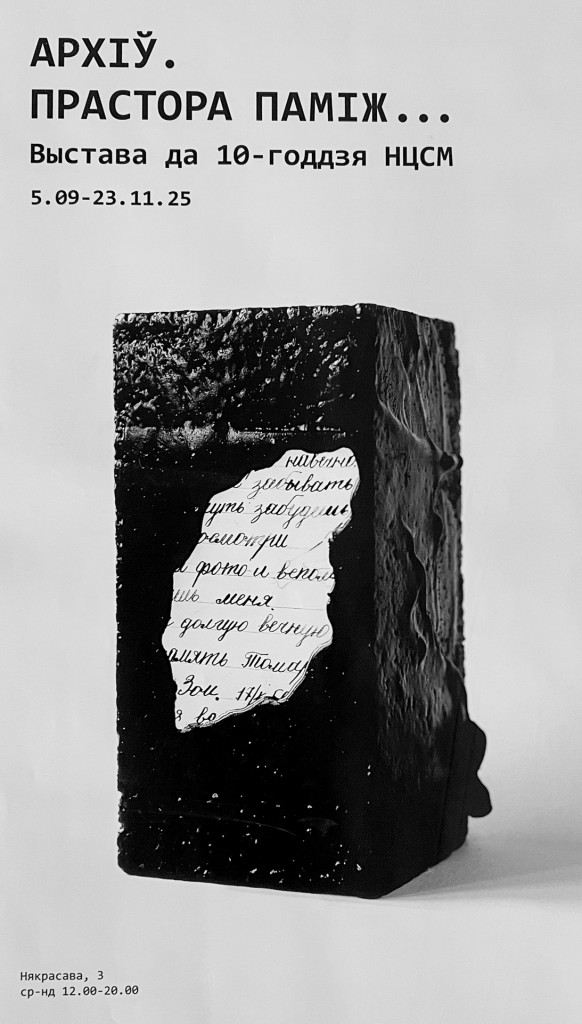 АРХІЎ.
ПРАСТОРА ПАМІЖ...
Выстава да 10-годдзя НЦСМ
5.09-23.11.25
навечно.
забывать
нуть забудешь
осмотри
фото и вспом
ешь меня.
долгую вечную
амять Томар
Зои.
я во
Някрасава, 3
ср-нд 12.00-20.00